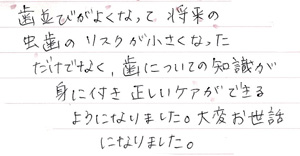 歯並びがよくなって 将来の
虫歯の リスクが小さくなった
だけでなく、歯についての知識が
身に付き 正しいケアができる
ようになりました。大変お世話
になりました。